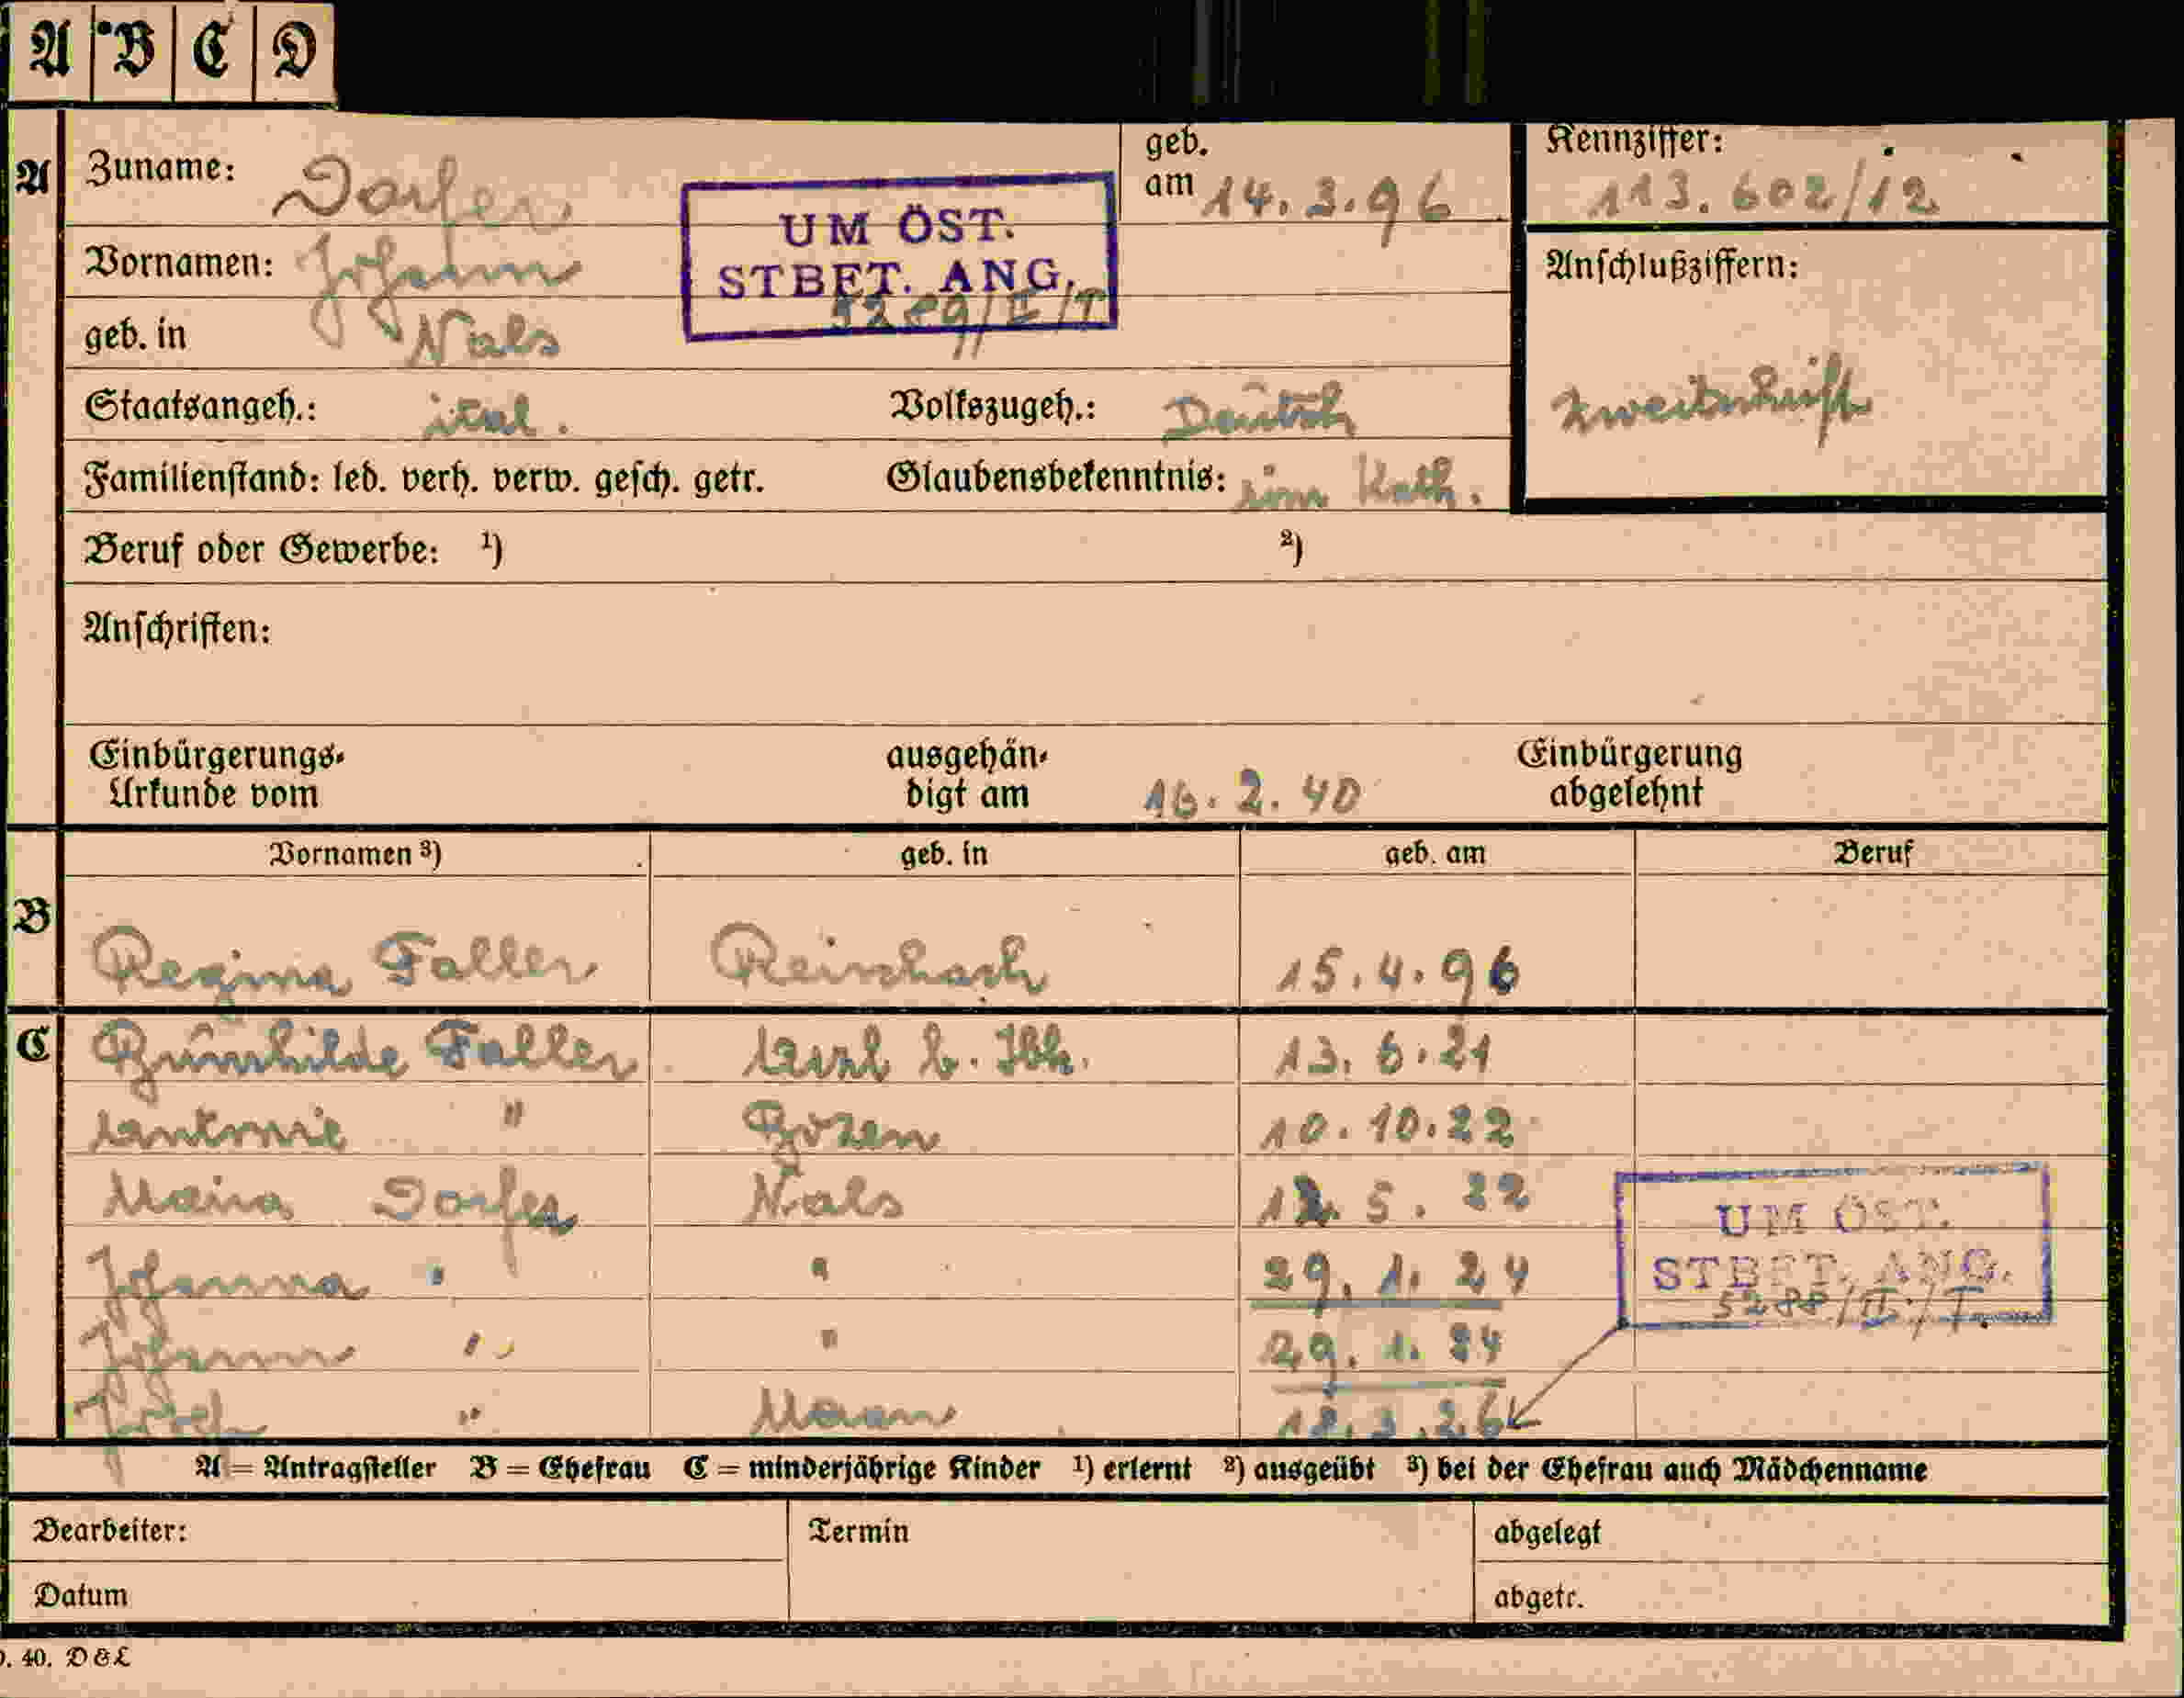 A B C D
A Zuname: Dorfer geb. am 14.3.96 Kennziffer: 113.602/12
UM ÖST.
STBET. ANG.
Vornamen: Johann Anschlußziffern:
geb. in Nals Zweitschrift
Staatsangeh.: ital. Volkszugeh.: Deutsch
Familienstand: led. verh. verw. gesch. getr. Glaubensbekenntnis: röm Kath.
Beruf oder Gewerbe: ¹) ²)
Anschriften:
Einbürgerungs- ausgehän- Einbürgerung
Urkunde vom digt am 16.2.40 abgelehnt
Vornamen ³) geb. in geb. am Beruf
B
Regina Faller Reischach 15.4.96
C Faller 13.6.21
Antonie " Bozen 10.10.22
Maria Dorfer Nals 12.5.22
UM ÖST.
Johanna " " 29.1.24
STBET. ANG.
5288/II/T.
Johann " " 29.1.24
Josef " Meran
A = Antragsteller B = Ehefrau C = minderjährige Kinder ¹) erlernt ²) ausgeübt ³) bei der Ehefrau auch Mädchenname
Bearbeiter: Termin abgelegt
Datum abgetr.
. 40. D&L